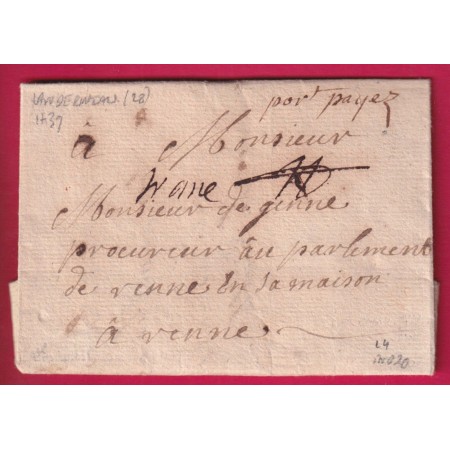 LANDERNEAU (28)
1739
port payez
à Monsieur
franc
Monsieur de ginne
procureur au parlement
de renne En sa maison
à renne
L4